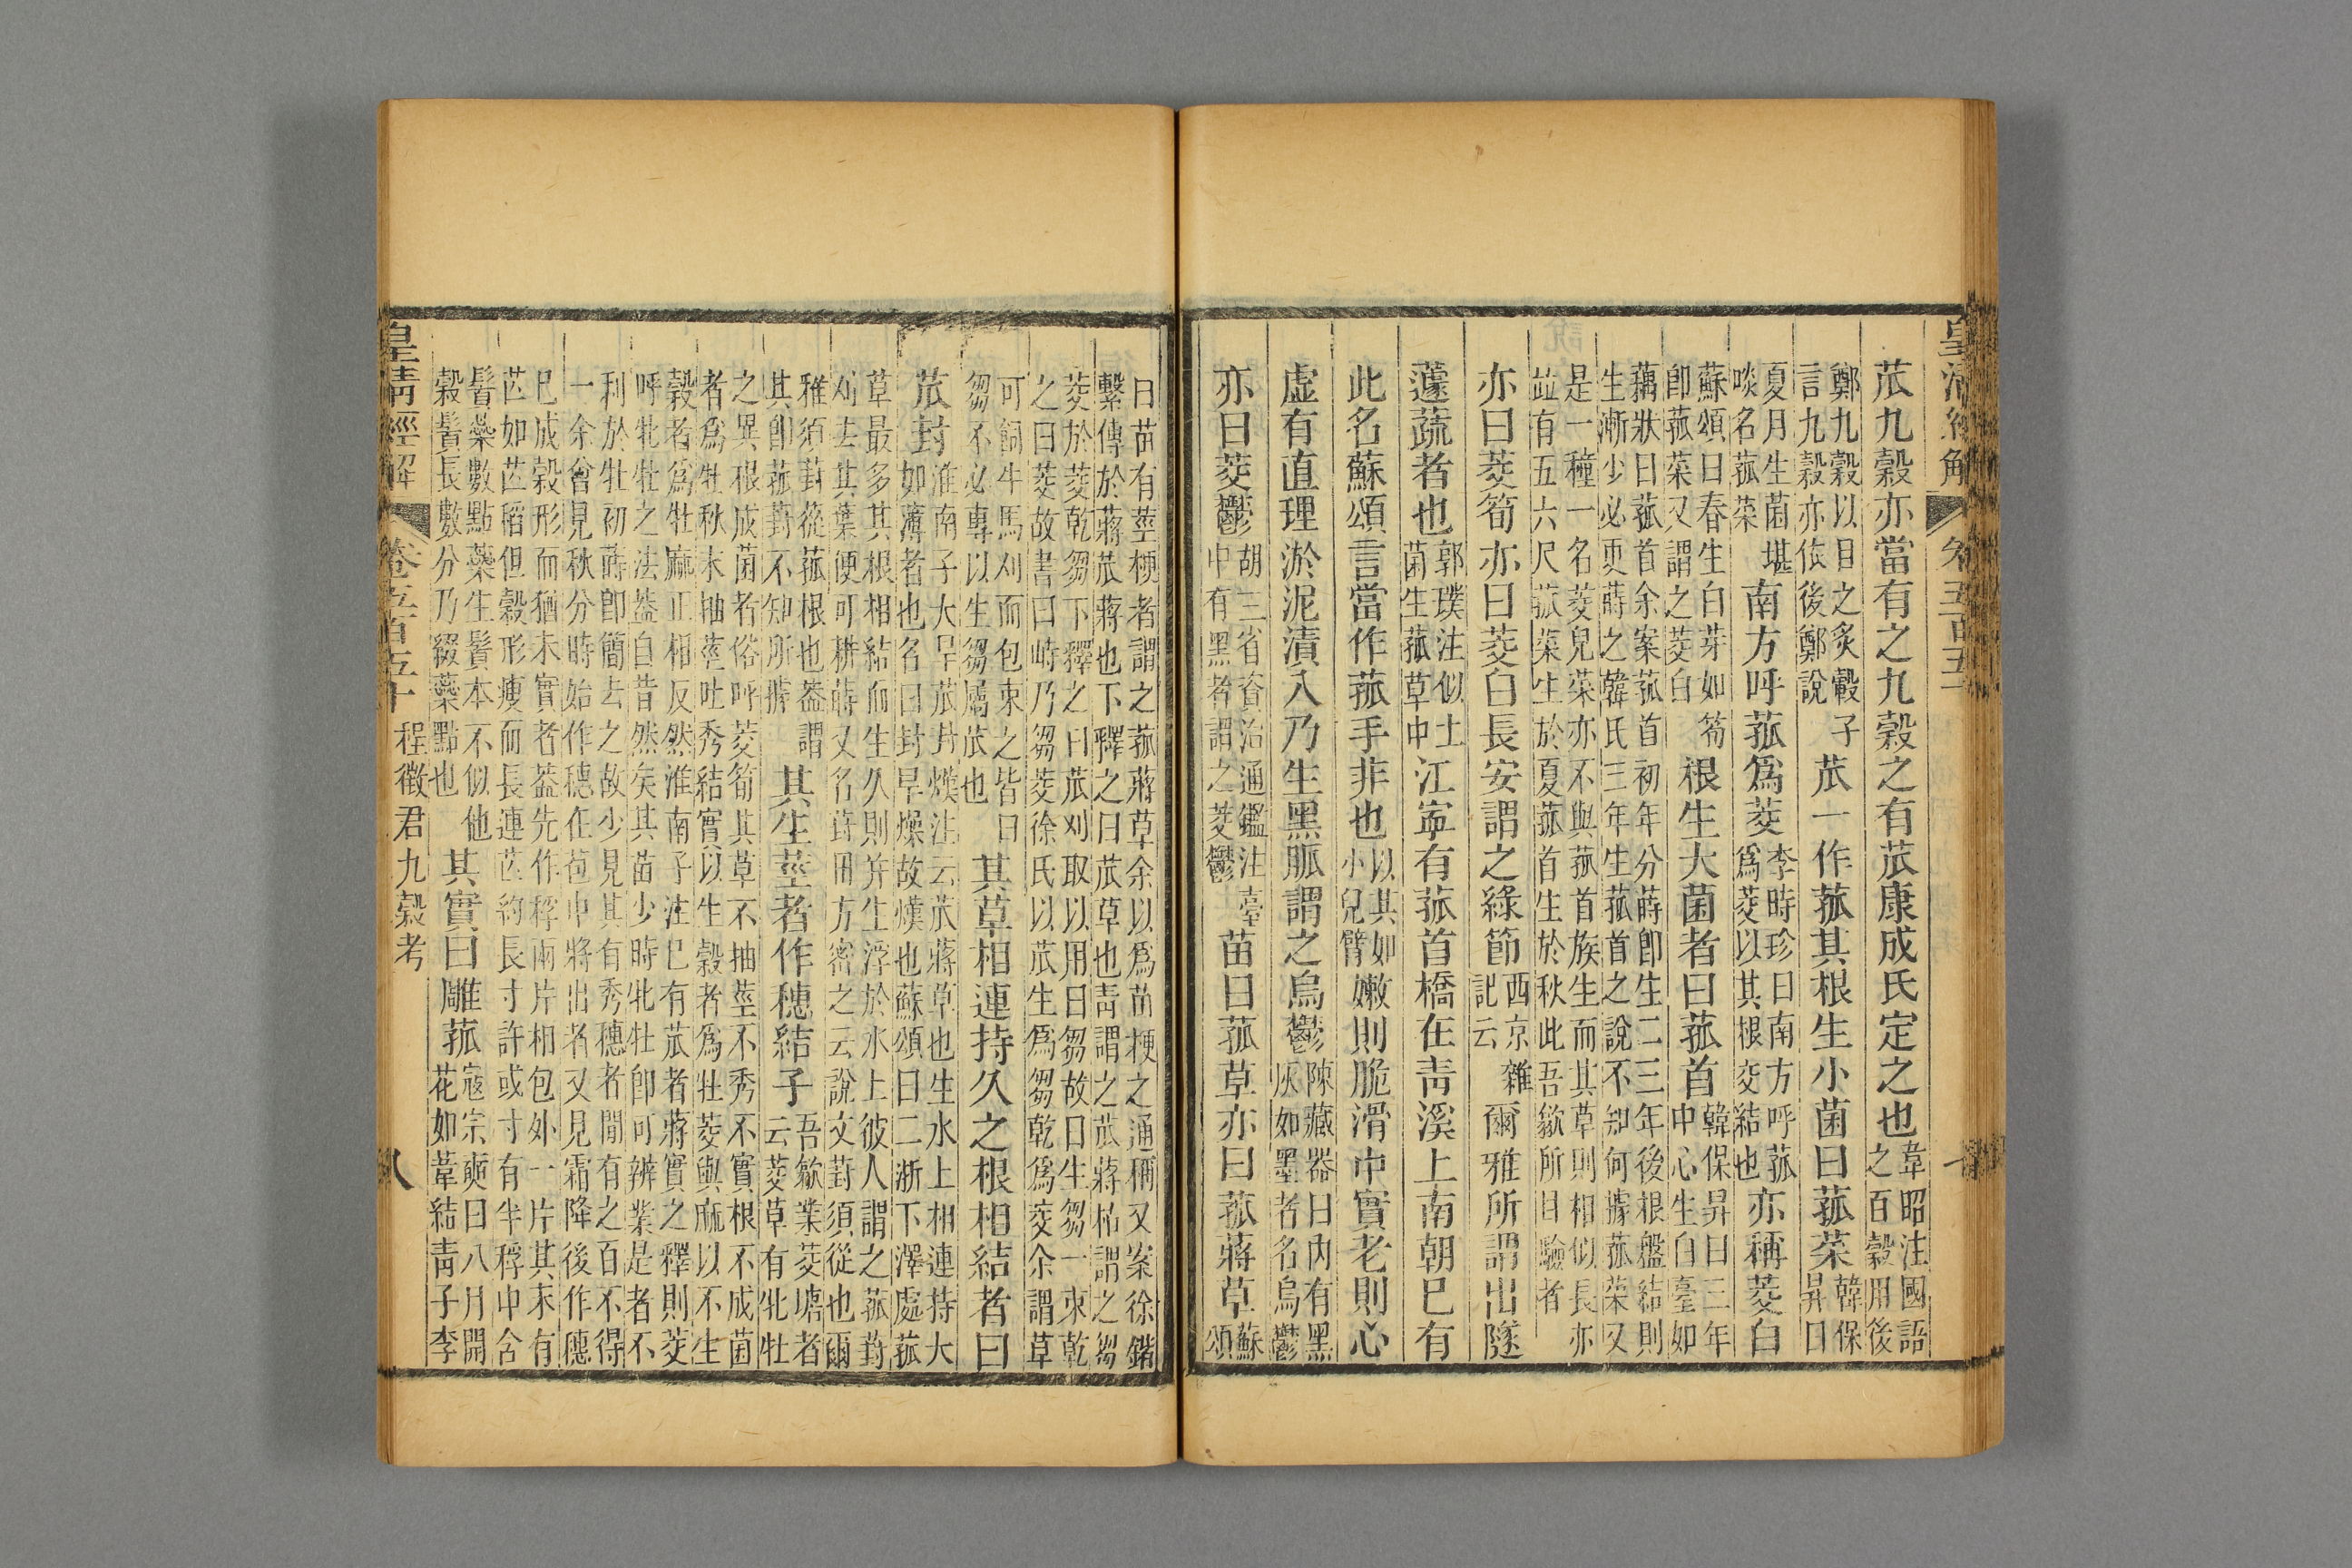 苽九穀亦當有之九穀之有苽康成氏定之也韋昭注國語之百穀用後
鄭九穀以目之炙轂子言九穀亦依後鄭說苽一作菰其根生小菌曰菰菜韓保昇曰
夏月生菌堪啖名菰菜南方呼菰爲茭李時珍曰南方呼菰爲茭以其根交結也亦稱茭白
蘇頌曰春生白芽如筍卽菰菜又謂之茭白根生大菌者曰菰首韓保昇曰三年中心生白臺如
藕狀曰菰首余案菰首初年分蒔卽生二三年後根盤結則生漸少必更蒔之韓氏三年生菰首之說不知何據菰菜又
是一種一名茭兒菜亦不與菰首族生而其草則相似長亦竝有五六尺菰菜生於夏菰首生於秋此吾歙所目驗者
亦曰茭筍亦曰茭白長安謂之綠節西京雜記云爾雅所謂出隧
蘧蔬者也郭璞注似土菌生菰草中江寧有菰首橋在青溪上南朝已有
此名蘇頌言當作菰手非也以其如小兒臂嫩則脆滑中實老則心
虛有直理淤泥漬入乃生黑脈謂之烏鬱陳藏器曰內有黑灰如墨者名烏鬱
亦曰茭鬱胡三省資治通鑑注臺中有黑者謂之茭鬱苗曰菰草亦曰菰蔣草蘇頌
曰苗有莖梗者謂之菰蔣草余以爲苗梗之通稱又案徐鍇繫傳於蔣苽蔣也下釋之曰苽草也靑謂之苽蔣枯謂之芻
茭於茭乾芻下釋之曰苽刈取以用曰芻故曰生芻一束乾之曰茭故書曰峙乃芻茭徐氏以苽生爲芻乾爲茭余謂草
可飼牛馬刈而包束之皆曰芻不必專以生芻屬苽也其草相連持久之根相結者曰
苽封淮南子大旱苽封熯注云苽蔣草也生水上相連持大如薄者也名曰封旱燥故熯也蘇頌曰二浙下澤處菰
草最多其根相結而生久則幷生浮於水上彼人謂之菰葑刈去其葉便可耕蒔又名葑田方密之云說文葑須從也爾
雅須葑蓯菰根也葢謂其卽菰葑不知所據其生莖者作穗結子吾歙業茭塘者云茭草有牝牡
之異根成菌者俗呼茭筍其草不抽莖不秀不實根不成菌者爲牡秋末抽莖吐秀結實以生穀者爲牡茭與麻以不生
穀者爲牡麻正相反然淮南子注已有苽者蔣實之釋則茭呼牝牡之法葢自昔然矣其苗少時牝牡卽可辨業是者不
利於牡初蒔卽簡去之故少見其有秀穗者閒有之百不得一余曾見秋分時始作穗在苞中將出者又見霜降後作穗
已成穀形而猶未實者葢先作稃兩片相包外一片其末有芒如芒稻但穀形瘦而長連芒約長寸許或寸有半稃中含
鬚蘂數點蘂生鬚本不似他穀鬚長數分乃綴蘂點也其實曰雕菰寇宗奭曰八月開花如葦結青子李
皇淸經解
卷五百五十
程徵君九穀考
八